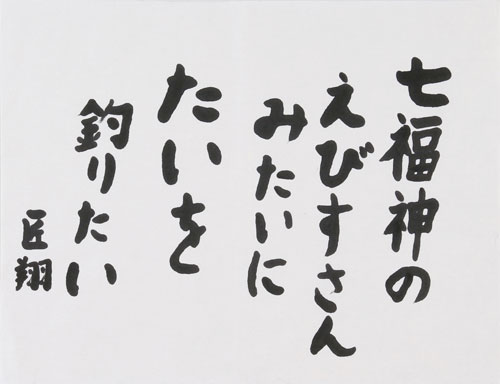 七福神の
えびすさん
みたいに
たいを
釣りたい
匠翔